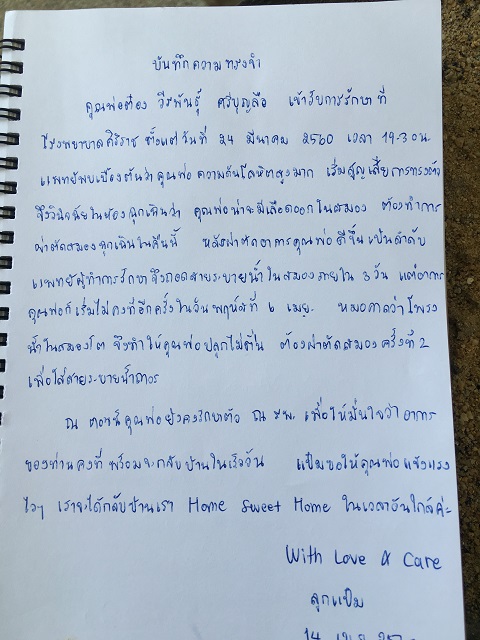 บันทึกความทรงจำ
คุณพ่อต้อง วีรพันธุ์ ศรีบุญลือ เข้ารับการรักษาที่
โรงพยาบาลศิริราช ตั้งแต่วันที่ 24 มีนาคม 2560 เวลา 19.30น.
แพทย์พบเบื้องต้นว่าคุณพ่อ ความดันโลหิตสูงมาก เริ่มสูญเสียการทรงตัว
จึงวินิจฉัยในห้องฉุกเฉินว่า คุณพ่อน่าจะมีเลือดออกในสมอง ต้องทำการ
ผ่าตัดสมองฉุกเฉินในคืนนี้ หลังผ่าตัดอาการคุณพ่อดีขึ้นเป็นลำดับ
แพทย์ผู้ทำการรักษาจึงถอดสายระบายน้ำในสมองภายใน 3 วัน แต่อาการ
คุณพ่อก็เริ่มไม่คงที่อีกครั้งในวันพฤหัสที่ 6 เมย. หมอคาดว่าโพรง
น้ำในสมองโต จึงทำให้คุณพ่อปลุกไม่ตื่น ต้องผ่าตัดสมองครั้งที่ 2
เพื่อใส่สายระบายน้ำถาวร
ณ ตอนนี้คุณพ่อยังคงรักษาตัว ณ รพ. เพื่อให้มั่นใจว่าอาการ
ของท่านคงที่ พร้อมจะกลับบ้านในเร็ววัน แป้มขอให้คุณพ่อแข็งแรง
ไวๆ เราจะได้กลับบ้านเรา Home Sweet Home ในเวลาอันใกล้ค่ะ
With Love & Care
ลูกแป้ม
14